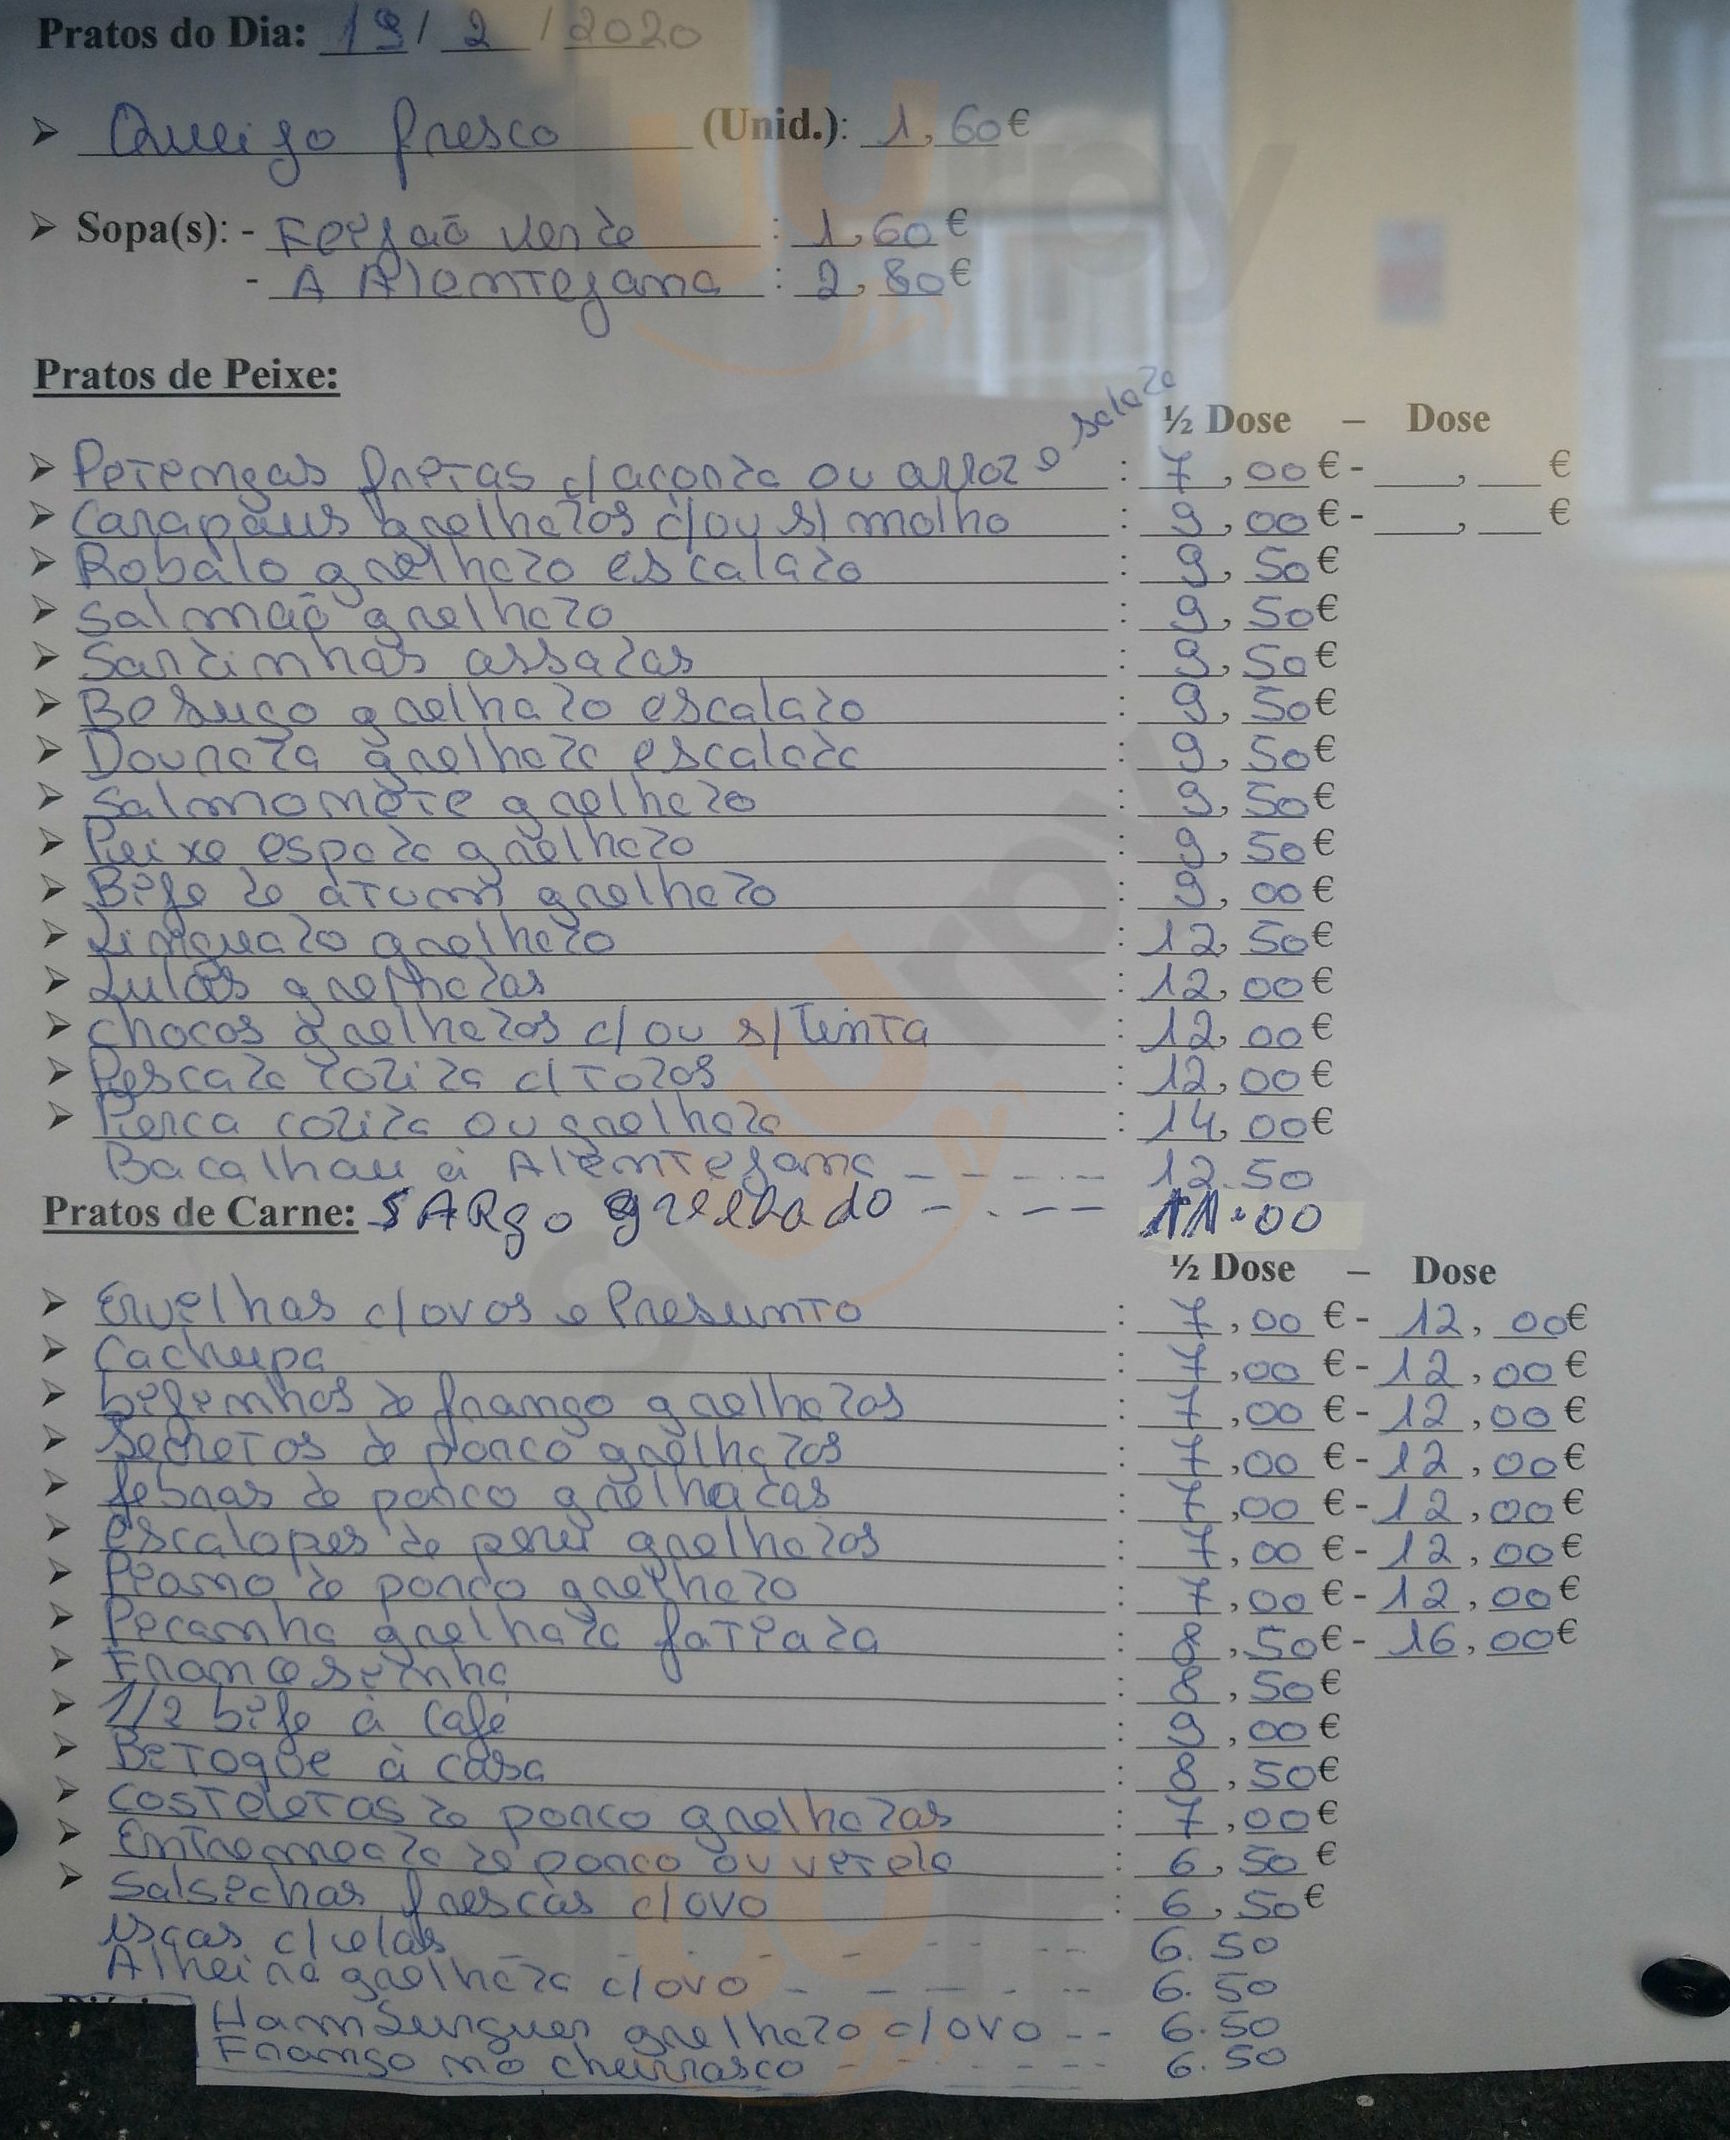 Pratos do Dia: 19/ 2 / 2020
Queijo fresco (Unid.): 1,60€
Sopa(s): - Feijão verde : 1,60€
- A Alentejana : 2,80€
Pratos de Peixe:
½ Dose – Dose
Petingas fritas c/açorda ou arroz e salada : 7,00€ - ___,___€
Carapaus grelhados c/ou s/ molho : 9,00€ - ___,___€
Robalo grelhado escalado : 9,50€
Salmão grelhado : 9,50€
Sardinhas assadas : 9,50€
Besugo grelhado escalado : 9,50€
Dourada grelhada escalada : 9,50€
Salmonete grelhado : 9,50€
Peixe espada grelhado : 9,50€
Bife de atum grelhado : 9,00€
Linguado grelhado : 12,50€
Lulas grelhadas : 12,00€
Chocos grelhados c/ ou s/ Tinta : 12,00€
Pescada cozida c/Todos : 12,00€
Perca cozida ou grelhada : 14,00€
Bacalhau à Alentejana - - - - - 12.50
Pratos de Carne: SARgo grelhado - - - - 11.00
½ Dose – Dose
Ervilhas c/ovos e Presunto : 7,00 € - 12,00€
Cachupa : 7,00 € - 12,00€
bifinhos de frango grelhados : 7,00 € - 12,00€
Secretos de porco grelhados : 7,00 € - 12,00€
febras de porco grelhadas : 7,00 € - 12,00€
escalopes de peru grelhados : 7,00 € - 12,00€
Piano de porco grelhado : 7,00 € - 12,00€
Picanha grelhada fatiada : 8,50€ - 16,00€
Francesinha : 8,50€
1/2 bife à Café : 9,00€
Bitoque à casa : 8,50€
Costeletas de porco grelhadas : 7,00€
Entremeada de porco ou vitela : 6,50€
Salsichas frescas c/ovo : 6,50€
iscas c/elas - - - - - 6.50
Alheira grelhada c/ovo - - - - - 6.50
Hamburguer grelhado c/ovo - - 6.50
Frango no churrasco - - - - - 6.50